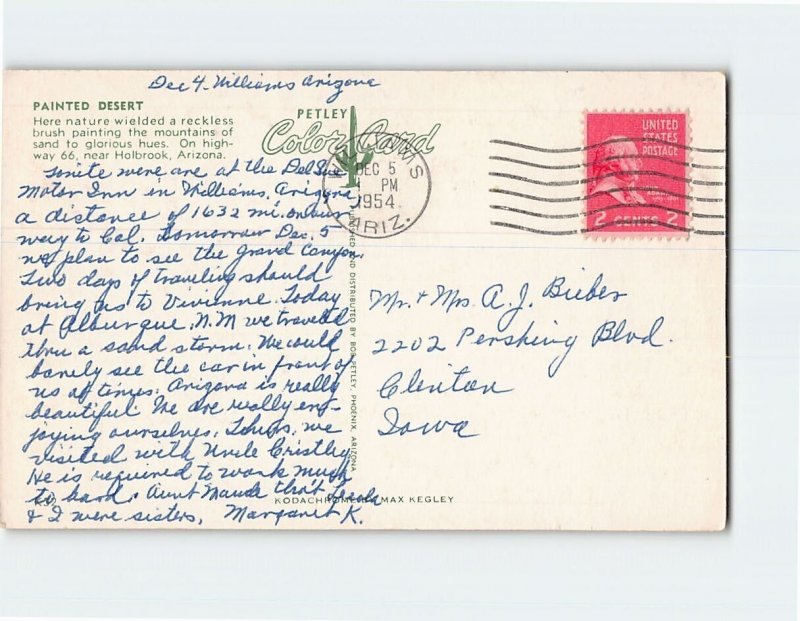 Dec 4. Williams Arizona
PAINTED DESERT
Here nature wielded a reckless
brush painting the mountains of
sand to glorious hues. On high-
way 66, near Holbrook, Arizona.
Tonite were are at the Del Sue
Motor Inn in Williams, Arizona
a distance of 1632 mi. on our
way to Cal. Tomorrow Dec. 5
we plan to see the Grand Canyon.
Two days of traveling should
bring us to Vivienne. Today
at Alburque, N.M we traveled
thru a sand storm. We could
barely see the car in front of
us at times. Arizona is really
beautiful. We are really en-
joying ourselves. Thurs. we
visited with Uncle Cristley
He is required to work much
to hard. Aunt Maude thot
& I were sisters. Margaret K.
PETLEY
Color Card
WILLIAMS
DEC 5
PM
1954
ARIZ.
UNITED
STATES
POSTAGE
2 CENTS 2
Mr. + Mrs. A. J. Bieber
2202 Pershing Blvd.
Clinton
Iowa
PUBLISHED AND DISTRIBUTED BY BOB PETLEY, PHOENIX, ARIZONA
KODACHROME MAX KEGLEY